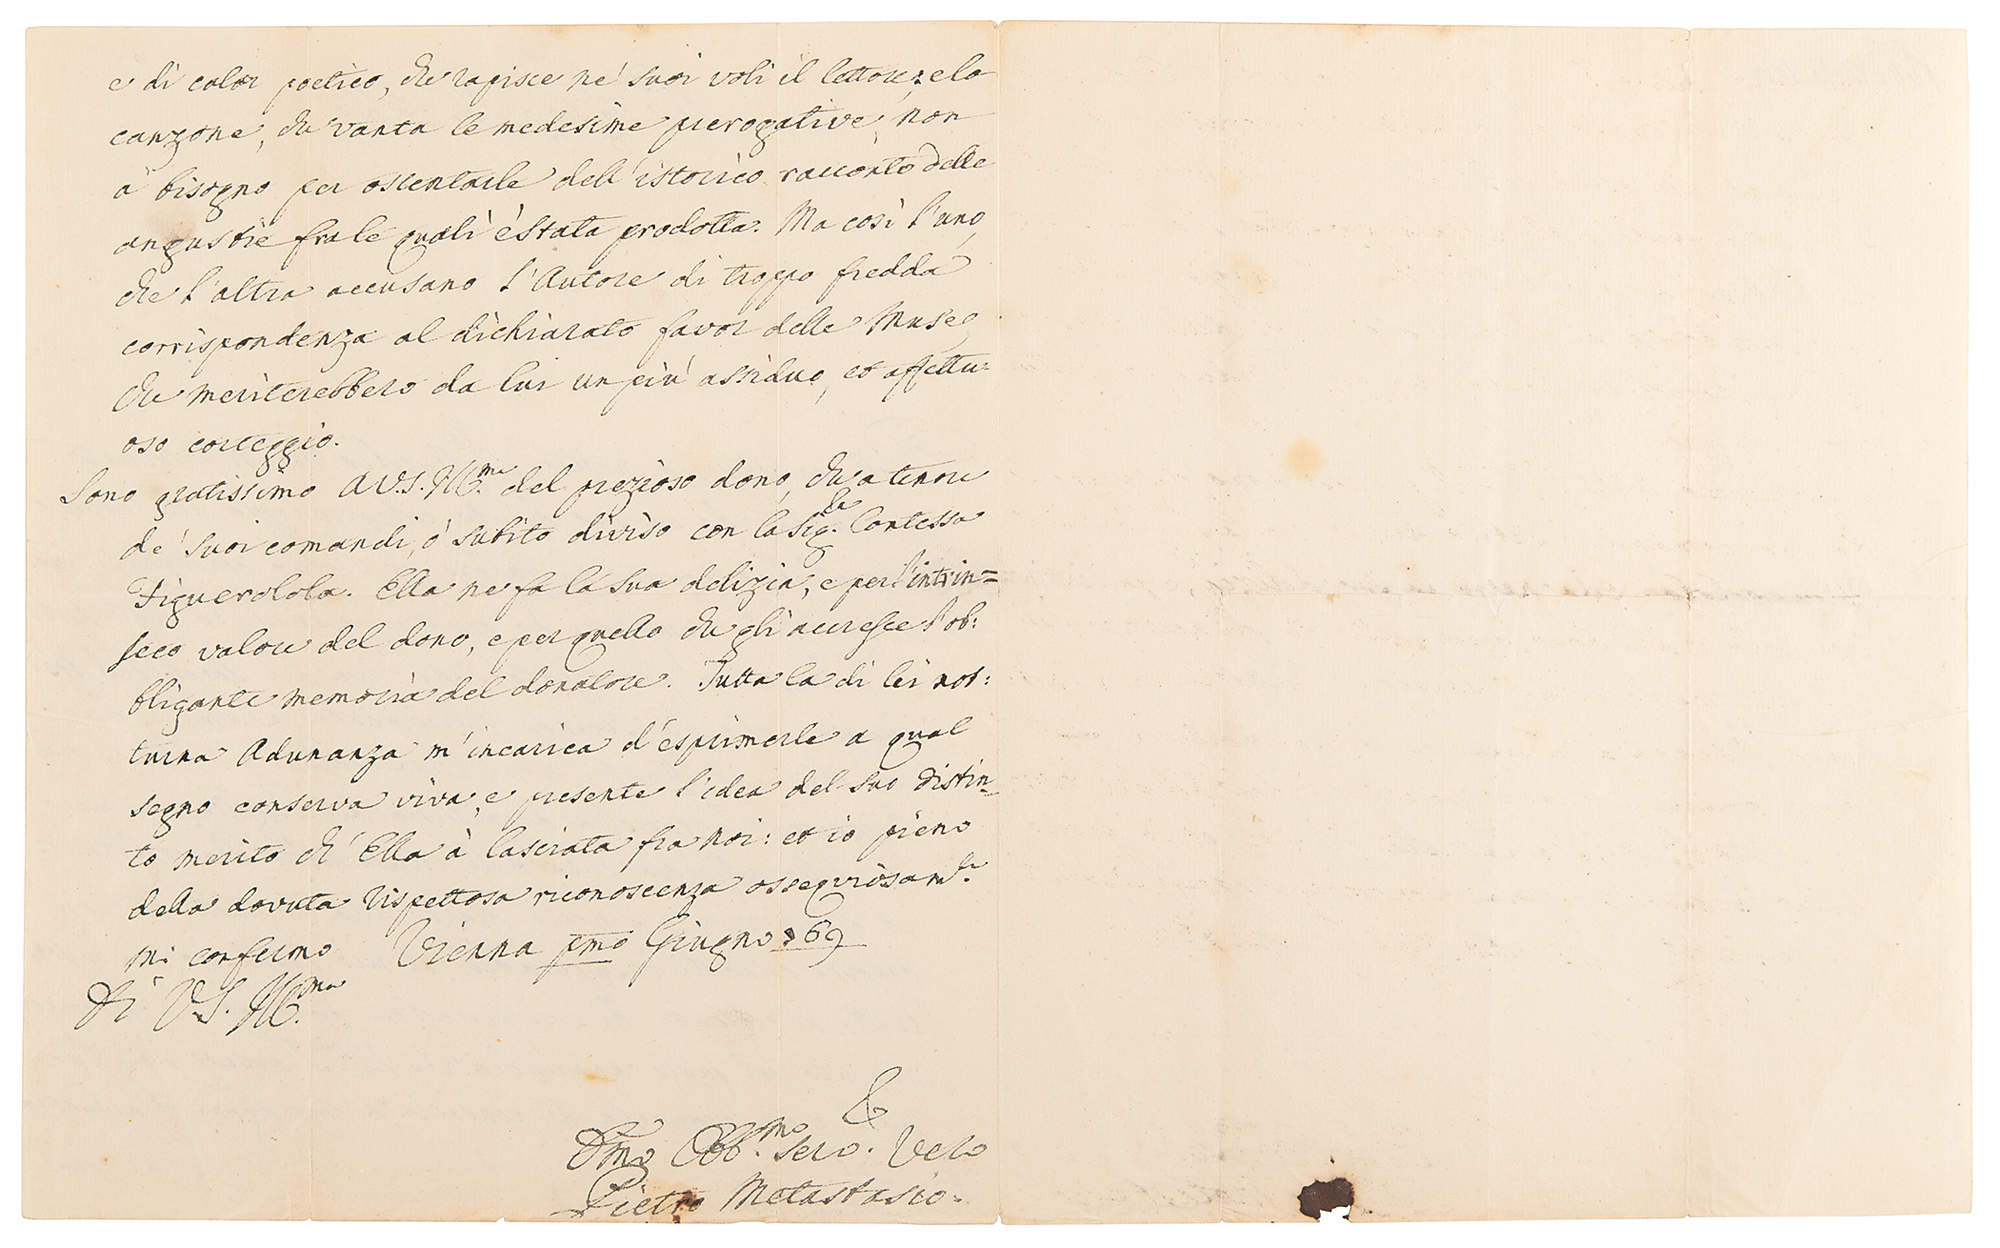 e di calor poetico, che rapisce ne' suoi voli il lettore: e la
canzone, che vanta le medesime prerogative, non
à bisogno per ostentarle dell'istorico racconto delle
angustie fra le quali è stata prodotta. Ma così l'uno,
che l'altra accusano l'Autore di troppo fredda
corrispondenza al dichiarato favor delle Muse,
che meriterebbero da lui un più assiduo, ed affettu:
oso corteggio.
Sono gratissimo a V.S. Ill.ma del prezioso dono, che a tenore
de' suoi comandi, ò subito diviso con la Sig.ra Contessa
Figuerolola. Ella ne fa la sua delizia, e per l'intrin=
seco valore del dono, e per quello che gli accresce l'ob:
bligante memoria del donatore. Tutta la di lei not:
turna Adunanza m'incarica d'esprimerle a qual
segno conserva viva, e presente l'idea del suo distin=
to merito ch'Ella à lasciata fra noi: ed io pieno
della dovuta rispettosa riconoscenza ossequiosam.te
mi confermo Vienna pmo Giugno 769
Di V.S. Ill.ma
Dmo Obb.mo Serv. Vero
Pietro Metastasio.